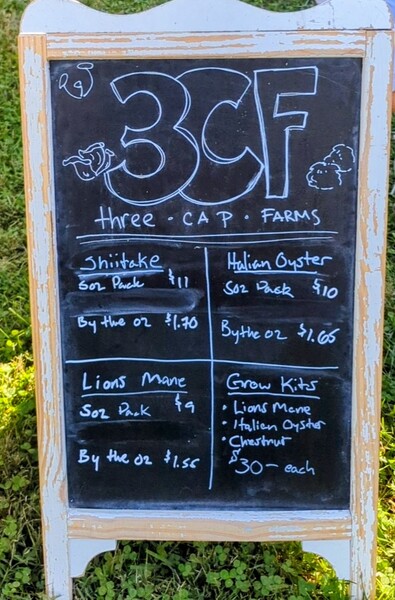 3CF
three · CAP · FARMS
Shiitake
Pack $11
By the oz $1.70
Italian Oyster
Pack $10
By the oz $1.65
Lions Mane
Pack $9
By the oz $1.55
Grow Kits
• Lions Mane
• Italian Oyster
• Chestnut
$30 - each